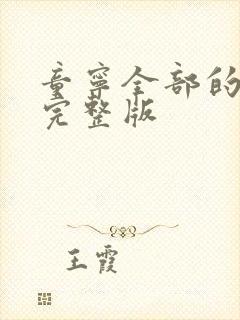 童宁全部的
完整版
王霞